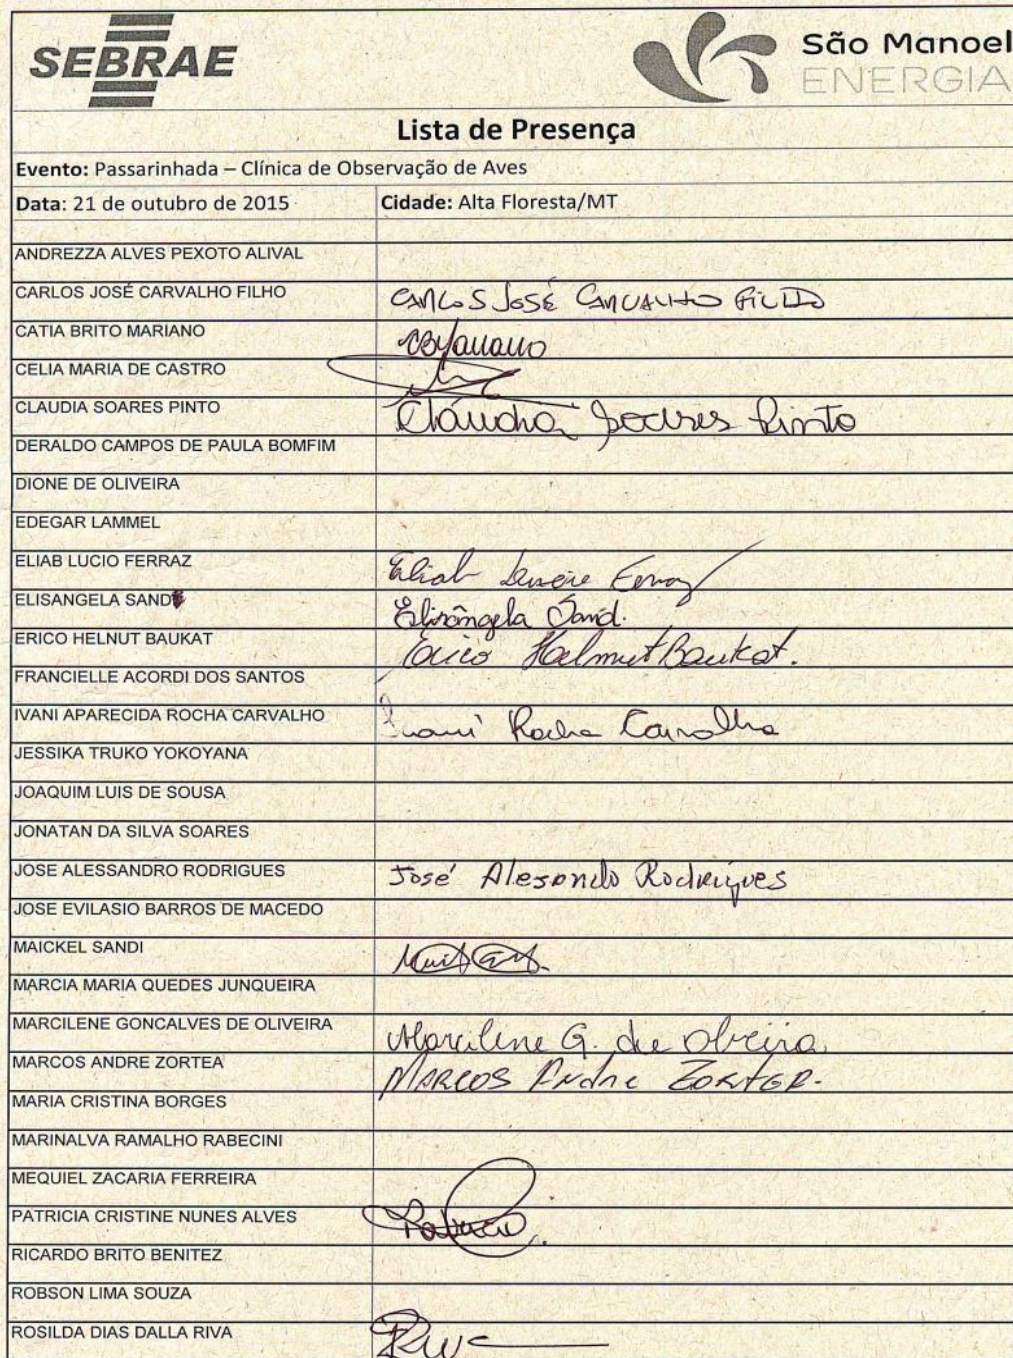 SEBRAE
São Manoel
ENERGIA
Lista de Presença
Evento: Passarinhada – Clínica de Observação de Aves
Data: 21 de outubro de 2015 Cidade: Alta Floresta/MT
ANDREZZA ALVES PEXOTO ALIVAL
CARLOS JOSÉ CARVALHO FILHO CARLOS JOSÉ CARVALHO FILHO
CATIA BRITO MARIANO
CELIA MARIA DE CASTRO
CLAUDIA SOARES PINTO Cláudia Soares Pinto
DERALDO CAMPOS DE PAULA BOMFIM
DIONE DE OLIVEIRA
EDEGAR LAMMEL
ELIAB LUCIO FERRAZ Eliab Ferraz
ELISANGELA SAND Elisângela Sand.
ERICO HELNUT BAUKAT Erico Helmut Baukat.
FRANCIELLE ACORDI DOS SANTOS
IVANI APARECIDA ROCHA CARVALHO Ivani Rocha Carvalho
JESSIKA TRUKO YOKOYANA
JOAQUIM LUIS DE SOUSA
JONATAN DA SILVA SOARES
JOSE ALESSANDRO RODRIGUES José Rodrigues
JOSE EVILASIO BARROS DE MACEDO
MAICKEL SANDI
MARCIA MARIA QUEDES JUNQUEIRA
MARCILENE GONCALVES DE OLIVEIRA Marcilene G. de Oliveira
MARCOS ANDRE ZORTEA MARCOS Andre ZORTEA.
MARIA CRISTINA BORGES
MARINALVA RAMALHO RABECINI
MEQUIEL ZACARIA FERREIRA
PATRICIA CRISTINE NUNES ALVES
RICARDO BRITO BENITEZ
ROBSON LIMA SOUZA
ROSILDA DIAS DALLA RIVA